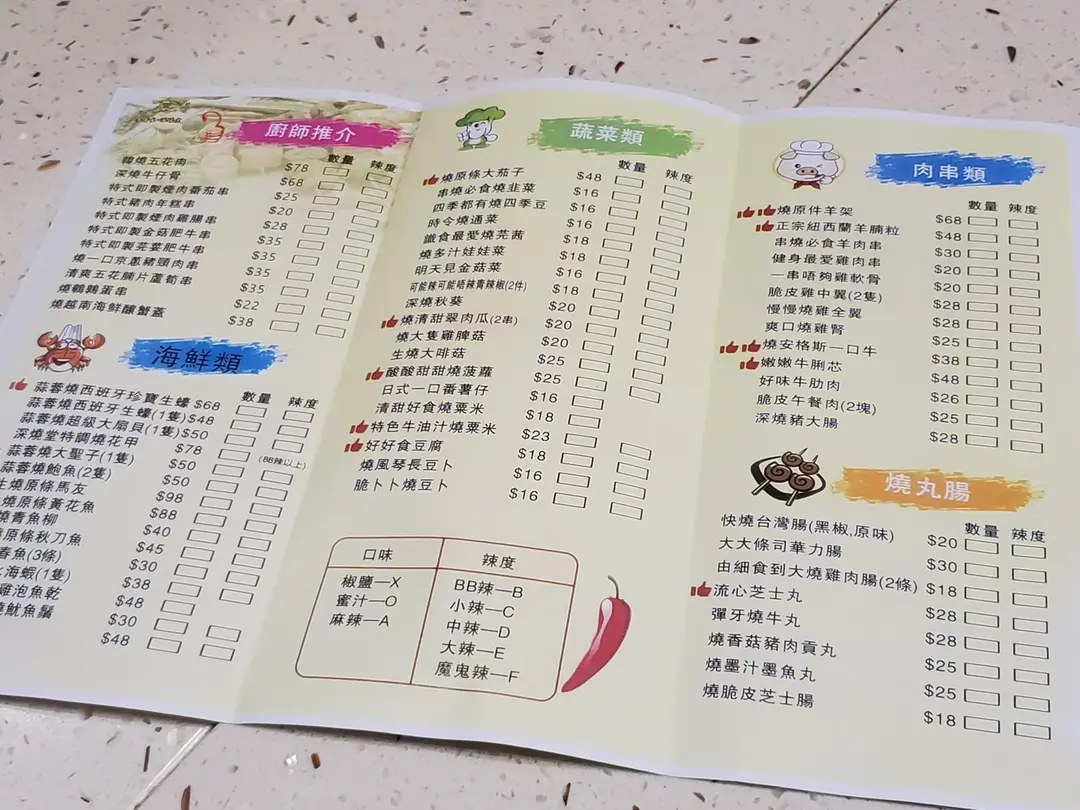 廚師推介
數量 辣度
韓燒五花肉
深燒牛仔骨
特式即製煙肉番茄串
特式豬肉年糕串
特式即製煙肉雞腸串
特式即製金菇肥牛串
特式即製芫荽肥牛串
燒一口京蔥豬頸肉串
清爽五花腩片蘆筍串
燒鵪鶉蛋串
燒越南海鮮釀蟹蓋
$78
$68
$25
$20
$28
$35
$35
$35
$22
$38
海鮮類
數量 辣度
蒜蓉燒西班牙珍寶生蠔
蒜蓉燒西班牙生蠔(1隻)
蒜蓉燒超級大扇貝(1隻)
深燒堂特調燒花甲
蒜蓉燒大聖子(1隻)
蒜蓉燒鮑魚(2隻)
燒原條馬友
燒原條黃花魚
燒青魚柳
原條秋刀魚
春魚(3條)
海蝦(1隻)
雞泡魚乾
魷魚鬚
$68
$48
$50
$78
(BB辣以上)
$50
$50
$98
$88
$40
$45
$30
$38
$48
$30
$48
蔬菜類
數量 辣度
燒原條大茄子
串燒必食燒韭菜
四季都有燒四季豆
時令燒通菜
識食最愛燒芫茜
燒多汁娃娃菜
明天見金菇菜
可能辣可能唔辣青辣椒(2件)
深燒秋葵
燒清甜翠肉瓜(2串)
燒大隻雞脾菇
生燒大啡菇
酸酸甜甜燒菠蘿
日式一口番薯仔
清甜好食燒粟米
特色牛油汁燒粟米
好好食豆腐
燒風琴長豆卜
脆卜卜燒豆卜
$48
$16
$16
$18
$18
$16
$18
$20
$20
$20
$25
$25
$16
$18
$23
$18
$16
$16
口味 辣度
椒鹽—X
蜜汁—O
麻辣—A
BB辣—B
小辣—C
中辣—D
大辣—E
魔鬼辣—F
肉串類
數量 辣度
燒原件羊架
正宗紐西蘭羊腩粒
串燒必食羊肉串
健身最愛雞肉串
一串唔夠雞軟骨
脆皮雞中翼(2隻)
慢慢燒雞全翼
爽口燒雞腎
燒安格斯一口牛
嫩嫩牛脷芯
好味牛肋肉
脆皮午餐肉(2塊)
深燒豬大腸
$68
$48
$30
$20
$20
$28
$28
$25
$38
$48
$26
$25
$28
燒丸腸
數量 辣度
快燒台灣腸(黑椒,原味)
大大條司華力腸
由細食到大燒雞肉腸(2條)
流心芝士丸
彈牙燒牛丸
燒香菇豬肉貢丸
燒墨汁墨魚丸
燒脆皮芝士腸
$20
$30
$18
$28
$28
$25
$25
$18